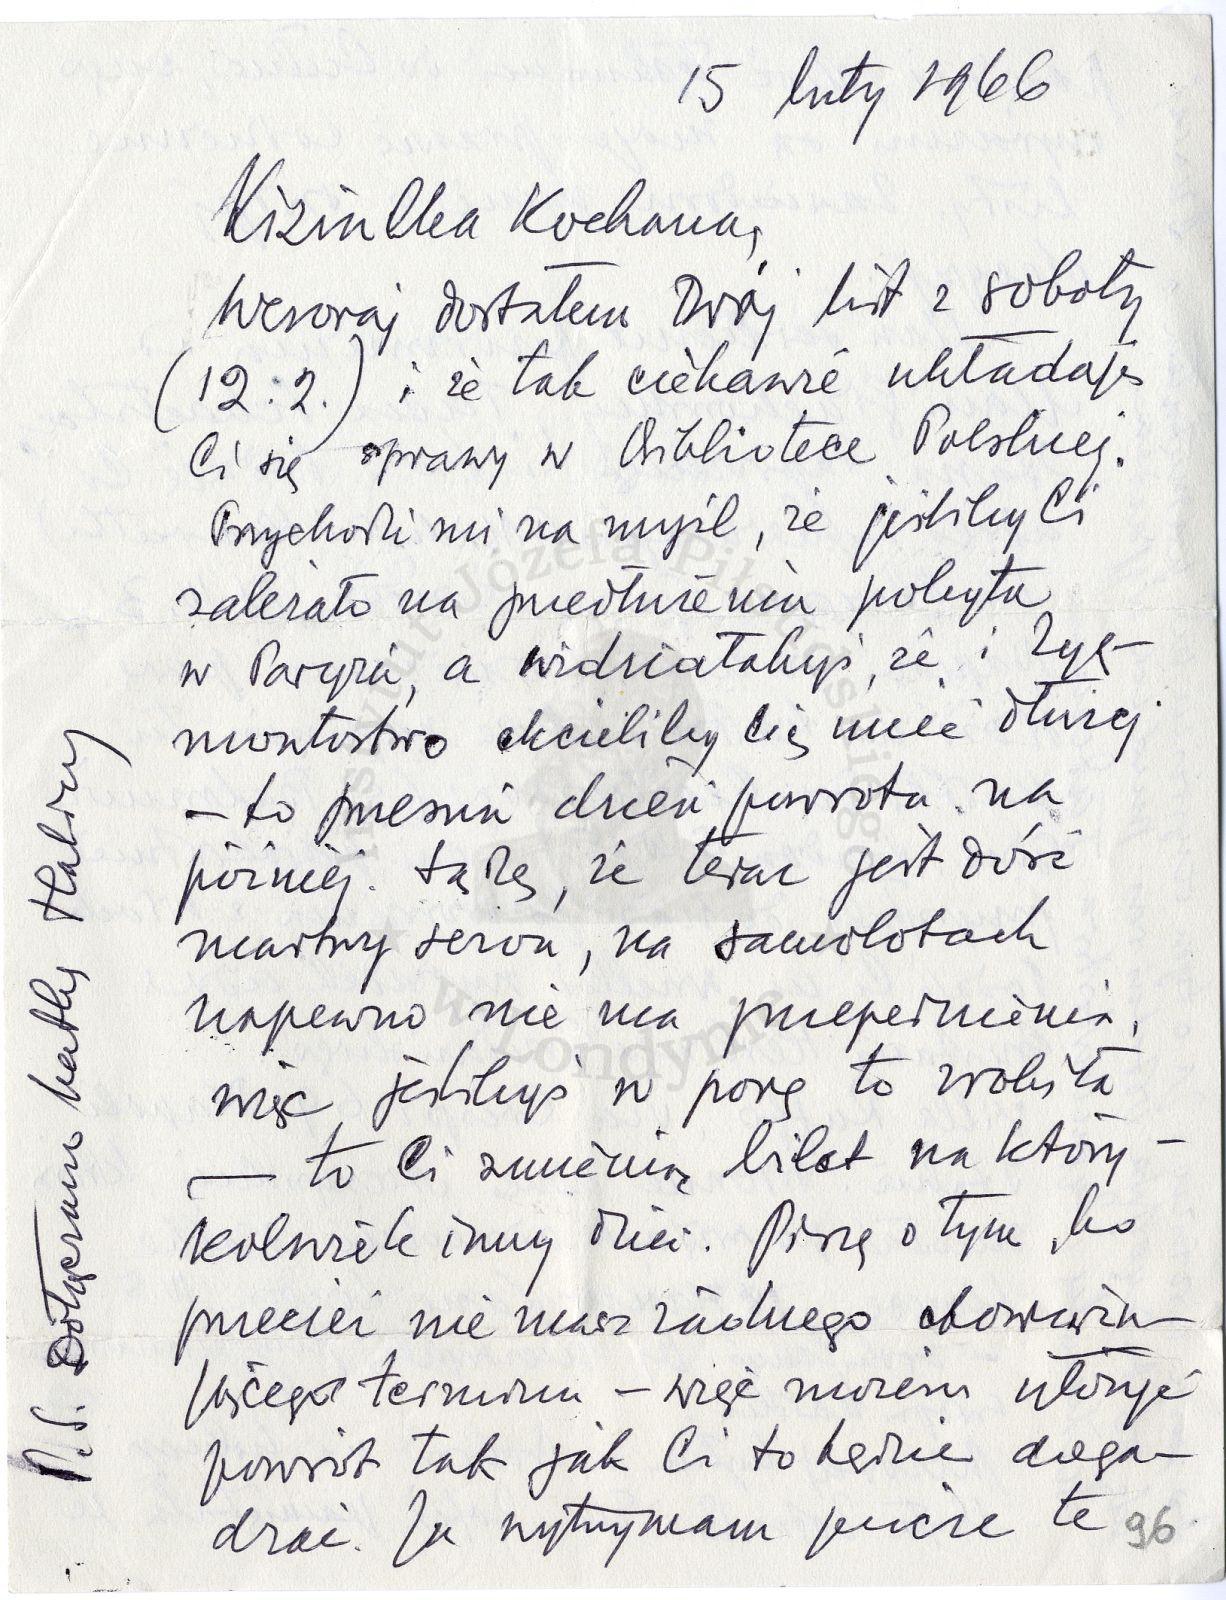 15 luty 1966
Kochana,
Wczoraj dostałem Twój list z soboty
(12.2.) i że tak ciekawie układają
Ci się sprawy w Bibliotece Polskiej.
Przychodzi mi na myśl, że jeśliby Ci
zależało na przedłużeniu pobytu
w Paryżu, a widziałabyś, że i Zyg-
montostwo chcieliby Cię mieć dłużej
– to przesuń dzień powrotu na
później. Sądzę, że teraz jest dość
martwy sezon, na samolotach
napewno nie ma przepełnienia,
więc jeślibyś w porę to zrobiła
— to Ci zmienią bilet na który-
kolwiek inny dzień. Piszę o tym, bo
przecież nie masz żadnego obowiązu-
jącego terminu – więc możesz ułożyć
powrót tak jak Ci to będzie doga-
dzać. Ja wytrzymam jeszcze te
96
P.S. Dołączam kartkę Haliny
Instytut Józefa Piłsudskiego
w Londynie